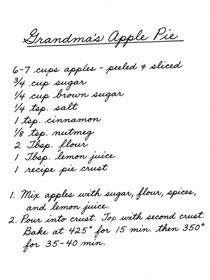 Grandma's Apple Pie
6-7 cups apples - peeled & sliced
3/4 cup sugar
1/4 cup brown sugar
1/4 tsp. salt
1 tsp. cinnamon
1/8 tsp. nutmeg
2 Tbsp. flour
1 Tbsp. lemon juice
1 recipe pie crust
1. Mix apples with sugar, flour, spices,
and lemon juice.
2. Pour into crust. Top with second crust.
Bake at 425° for 15 min. then 350°
for 35-40 min.